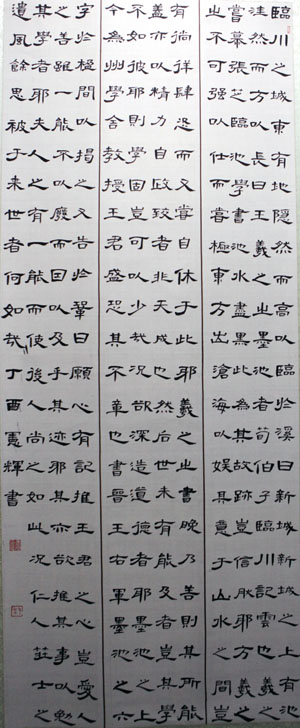 臨川之城東有地隱然而高以臨於溪曰新城新城之上有池
洼然而方以長曰王羲之之墨池者荀伯子臨川記云也羲之
嘗慕張芝臨池學書池水盡黑此為其故跡豈信然邪方羲之
之不可強以仕而嘗極東方出滄海以娛其意於山水之間豈
有徜徉肆恣而又嘗自休于此邪羲之之書晚乃善則其所能
蓋亦以精力自致者非天成也然後世未有能及者豈其學
不如彼邪則學固豈可以少哉況欲深造道德者邪墨池之上
今為州學舍教授王君盛恐其不章也書晉王右軍墨池之六
字於楹間以揭之又告於鞏曰願有記推王君之心豈愛人
之善雖一能不以廢而因以及乎其迹邪其亦欲推其事以勉
其學者耶夫人之有一能而使後人尚之如此況仁人莊士之
遺風餘思被于來世者何如哉丁酉憲輝書